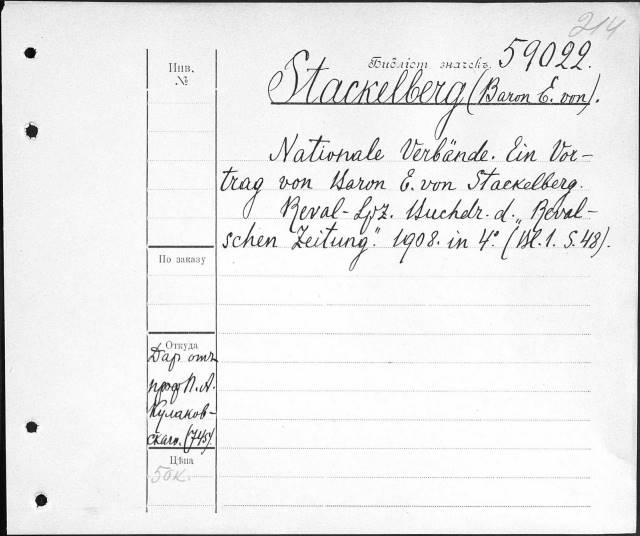 214
Инв.
№
Библіот. значекъ. 59022.
Stackelberg (Baron E. von).
Nationale Verbände. Ein Vor-
trag von Baron E. von Stackelberg.
Reval-Lpz. Buchdr. d. „Reval-
schen Zeitung". 1908. in 4° (Bl. 1. S. 48).
По заказу
Откуда
Дар. отъ
проф. П. А.
Кулаков-
скаго. (745).
Цѣна
50к.